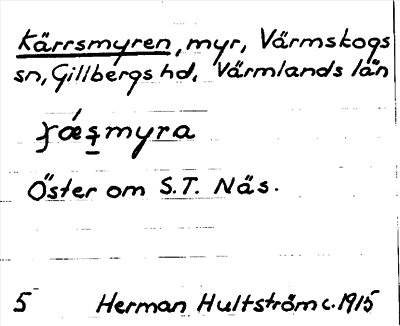 Kärrsmyren, myr, Värmskogs
sn, Gillbergs hd, Värmlands län
Öster om S.T. Näs.
5 Herman Hultström c. 1915